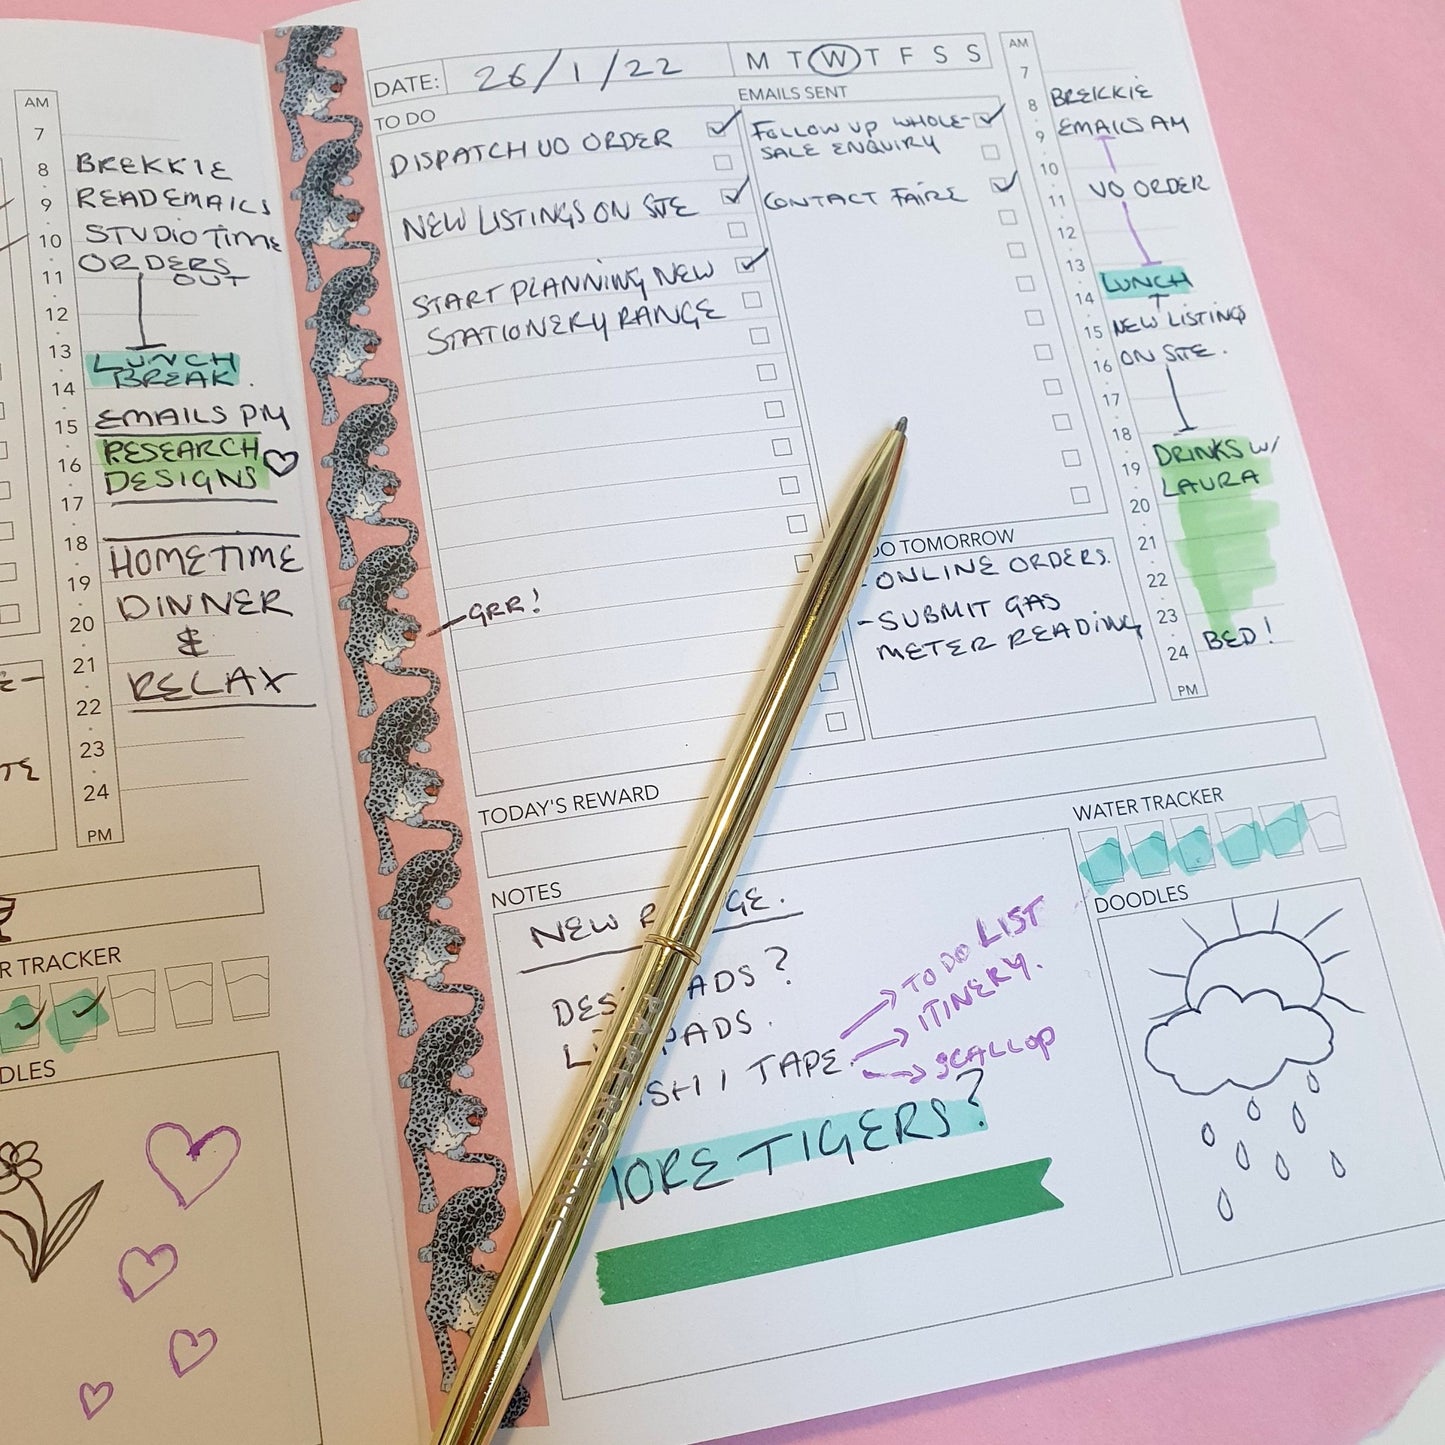 AM
7
8
9
10
11
12
13
14
15
16
17
18
19
20
21
22
23
24
PM
BREKKIE
READ EMAILS
STUDIO TIME
ORDERS
OUT
LUNCH
BREAK.
EMAILS PM
RESEARCH
DESIGNS
HOMETIME
DINNER
&
RELAX
R TRACKER
DLES
DATE: 26/1/22
M T W T F S S
TO DO
DISPATCH UO ORDER
NEW LISTINGS ON STE
START PLANNING NEW
STATIONERY RANGE
GRR!
EMAILS SENT
FOLLOW UP WHOLE-
SALE ENQUIRY
CONTACT FAIRE
DO TOMORROW
- ONLINE ORDERS.
- SUBMIT GAS
METER READING
AM
7
8
9
10
11
12
13
14
15
16
17
18
19
20
21
22
23
24
PM
BREKKIE
EMAILS AM
UO ORDER
LUNCH
NEW LISTINGS
ON STE.
DRINKS W/
LAURA
BED!
TODAY'S REWARD
WATER TRACKER
NOTES
NEW R GE.
DES ADS?
L PADS.
SHI TAPE
TO DO LIST
ITINERY.
SCALLOP
MORE TIGERS?
DOODLES